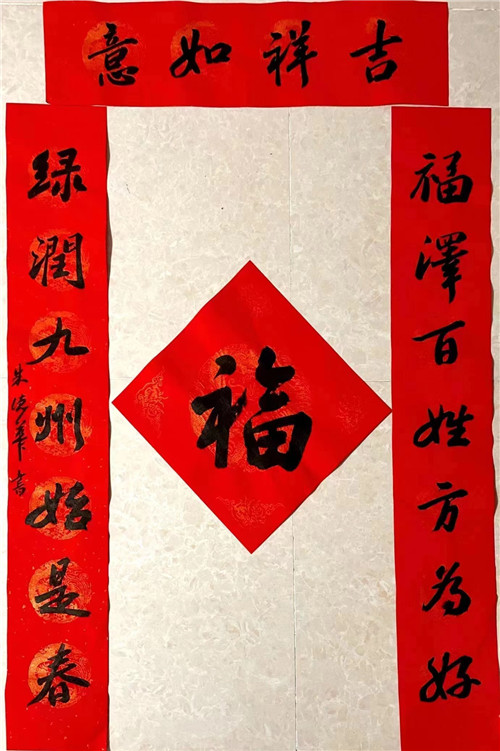 吉祥如意
福澤百姓方為好
绿潤九州始是春
福
朱德華书